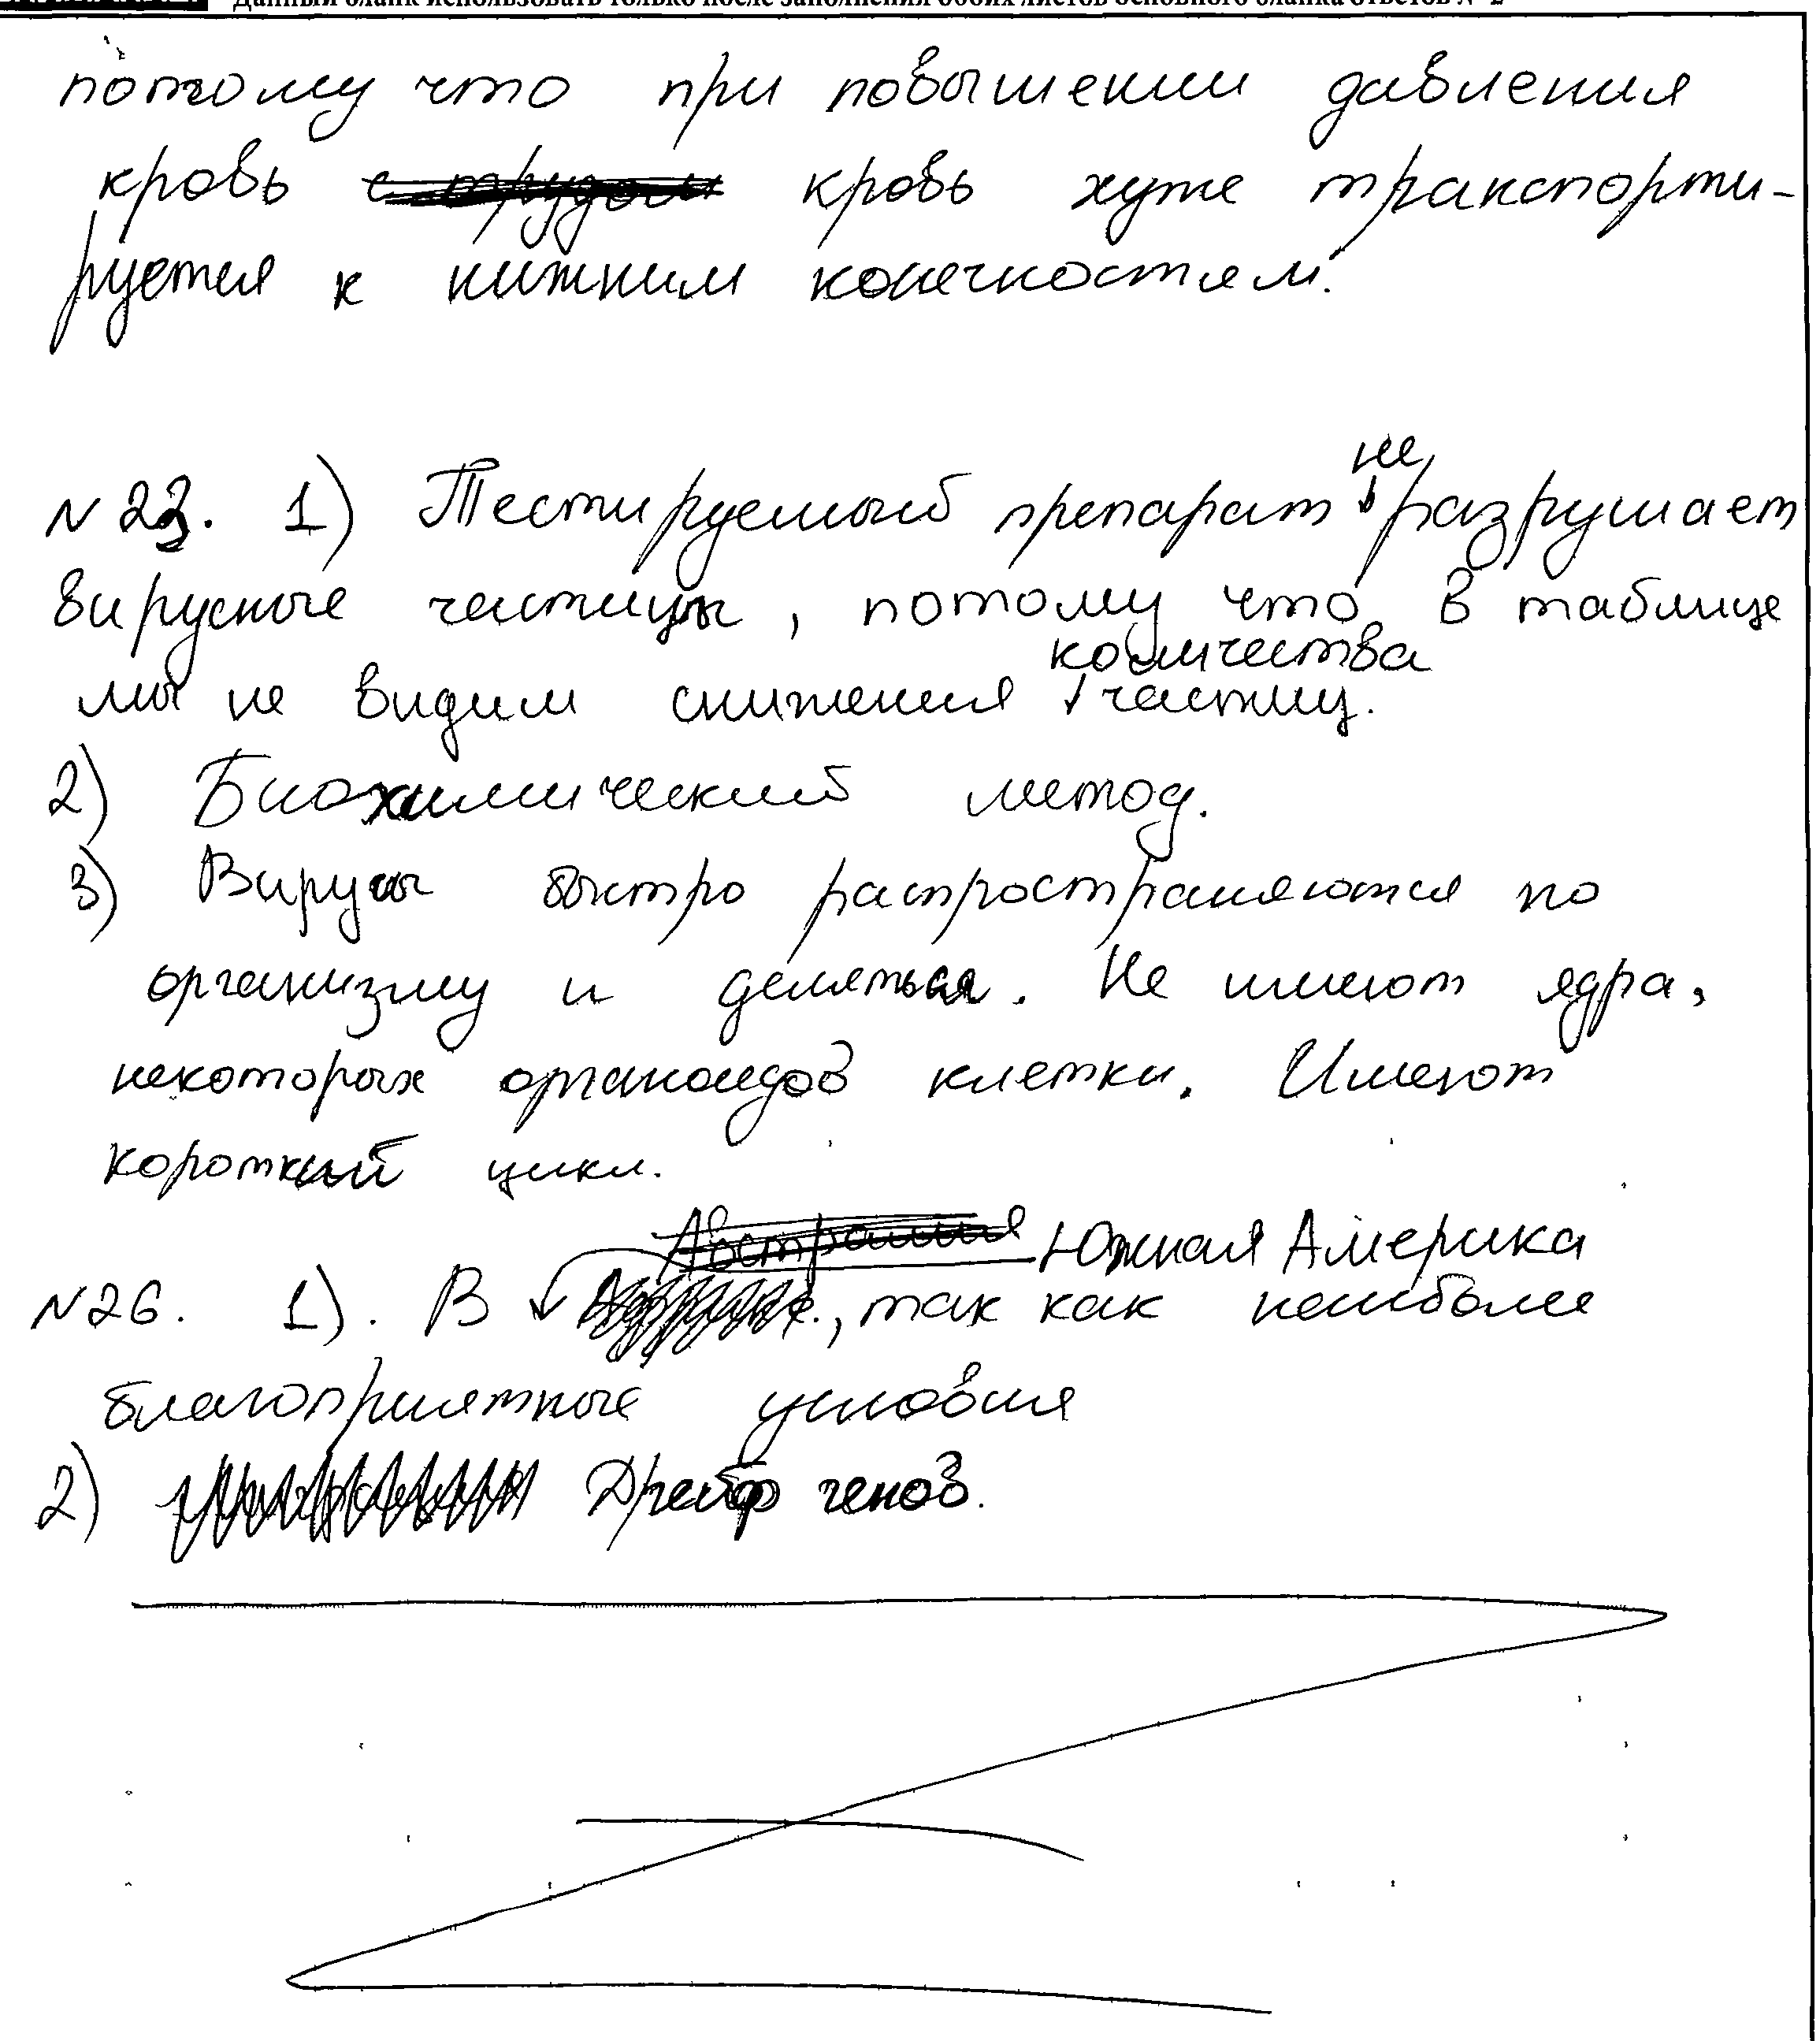 Данный бланк использовать только после заполнения обоих листов основного бланка ответов № 2
потому что при повышении давления
кровь с трудом кровь хуже транспорти-
руется к нижним конечностям.
№ 23. 1) Тестируемый препарат не разрушает
вирусные частицы, потому что в таблице
мы не видим снижения количества частиц.
2) Биохимический метод.
3) Вирусы быстро распространяются по
организму и деляться. Не имеют ядра,
некоторых органоидов клетки. Имеют
короткий цикл.
Австралия Южная Америка
№26. 1). В , так как наиболее
благоприятные условия
2) Дрейф генов.